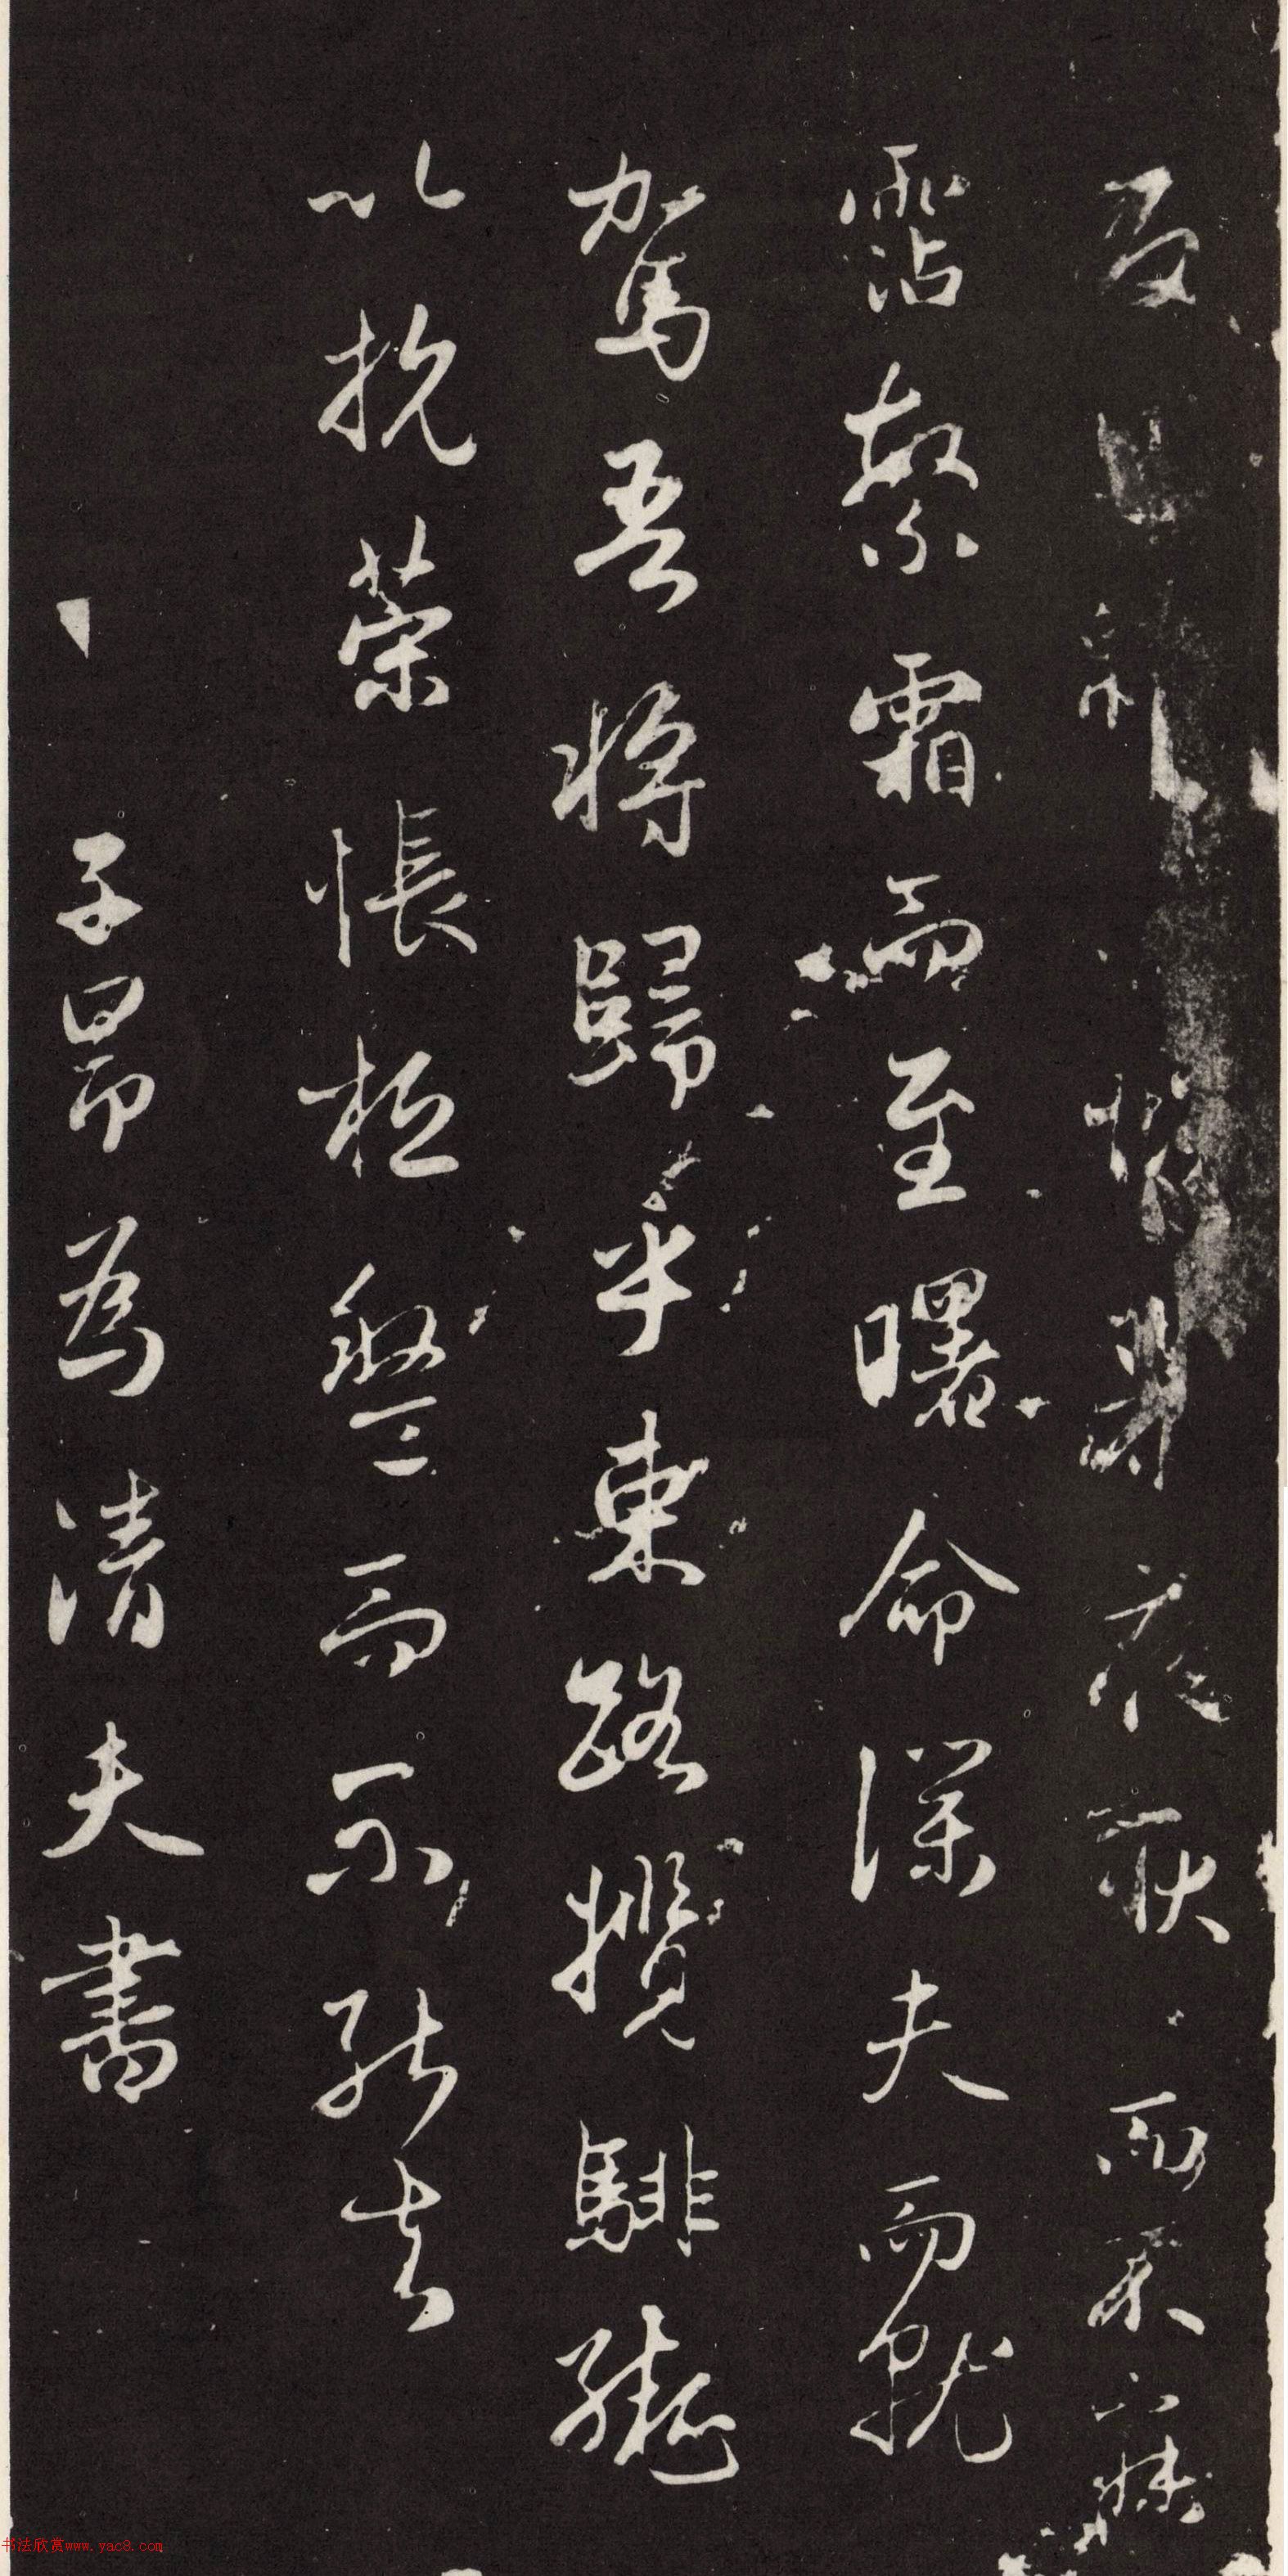 反思綿 督夜耿而不寐
霑繁霜而至曙命僕夫而就
駕吾將歸乎東路攬騑轡
以抗策悵盤桓而不能去
子昂為清夫書
书法欣赏www.yac8.com